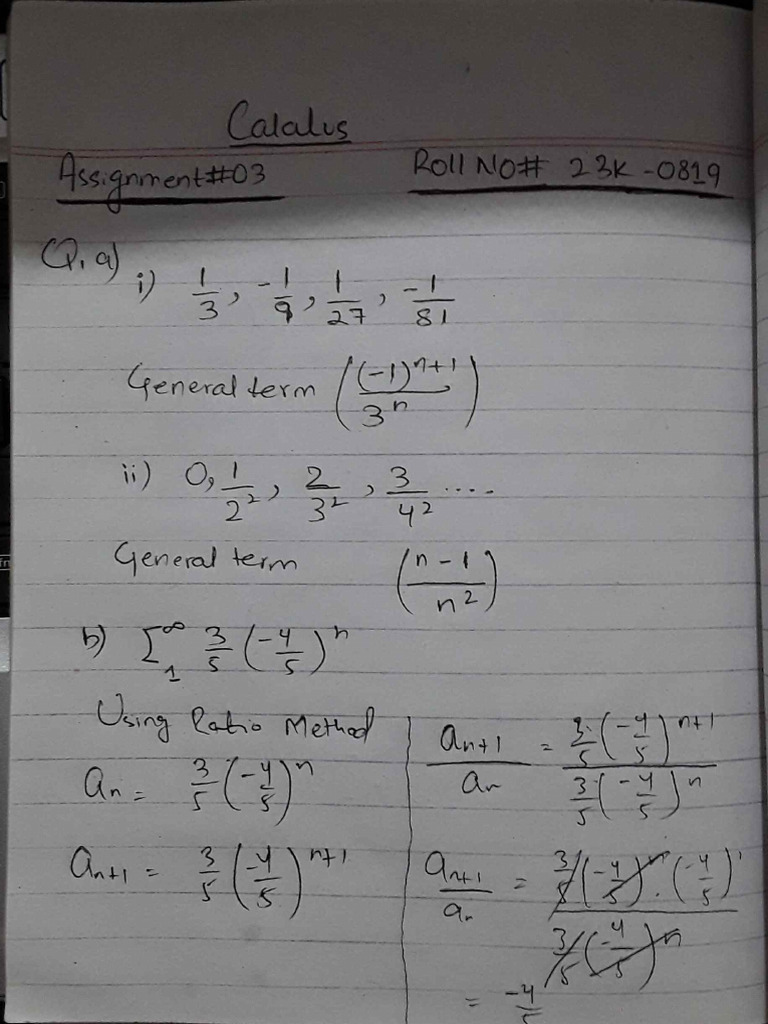 Calalus
Assignment#03 Roll NO# 23K-0819
Q, a)
i) 1/3, -1/9, 1/27, -1/81
General term ((-1)^(n+1)/3^n)
ii) 0, 1/2², 2/3², 3/4² ....
General term ((n-1)/n²)
b) Σ₁^∞ 3/5 (-4/5)^n
Using Ratio Method
aₙ = 3/5 (-4/5)^n
aₙ₊₁ = 3/5 (-4/5)^(n+1)
aₙ₊₁/aₙ = 3/5 (-4/5)^(n+1) / 3/5 (-4/5)^n
aₙ₊₁/aₙ = 3/5 (-4/5)^n . (-4/5)^1 / 3/5 (-4/5)^n
= -4/5